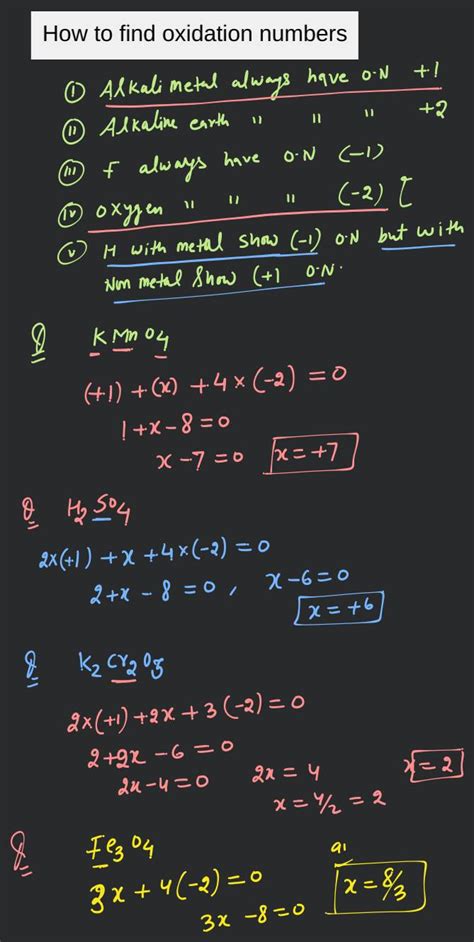 How to find oxidation numbers
(i) Alkali metal always have O·N +1
(ii) Alkaline earth " " " +2
(iii) F always have O·N (-1)
(iv) Oxygen " " " (-2) [
(v) H with metal show (-1) O·N but with
Non metal Show (+1 O·N·
Q KMnO4
(+1) + (x) + 4×(-2) = 0
1+x-8=0
x-7=0 x=+7
Q H2SO4
2×(+1) + x + 4×(-2) = 0
2+x-8=0, x-6=0
x=+6
Q K2Cr2O3
2×(+1)+2x+3(-2)=0
2+2x-6=0
2x-4=0 2x=4 x=2
x=4/2=2
Q Fe3O4
3x+4(-2)=0 x=8/3
3x-8=0